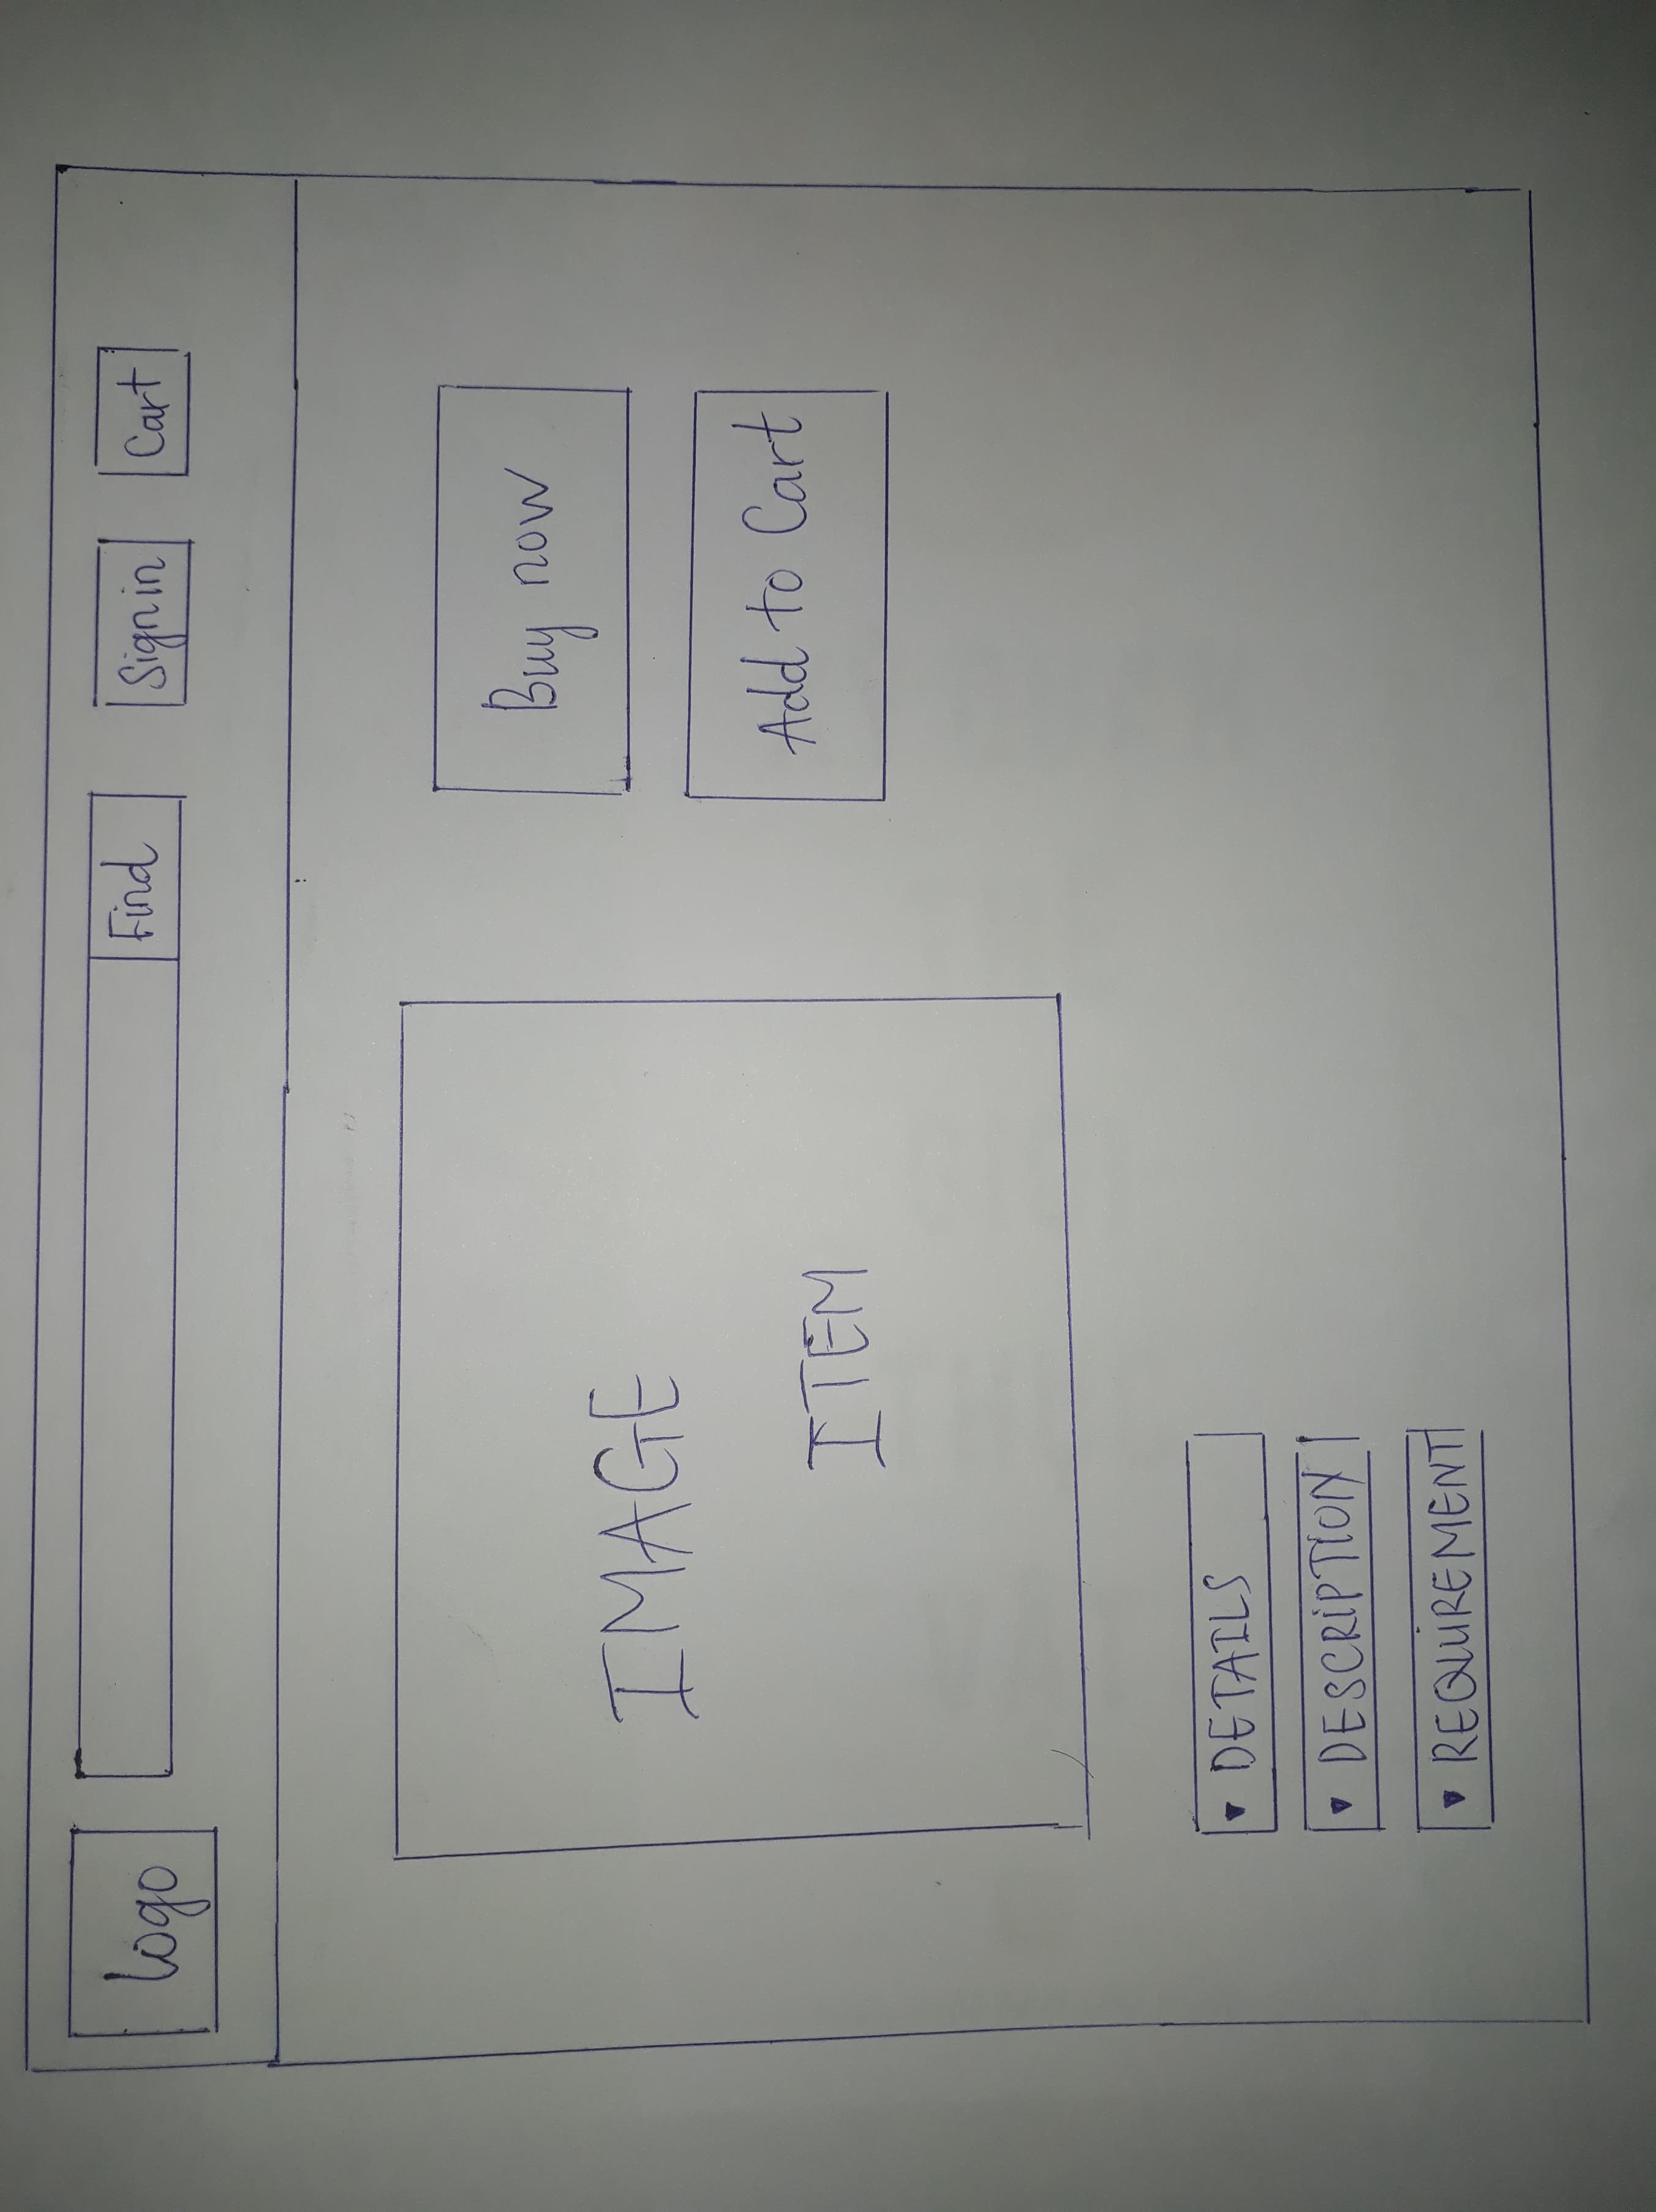 logo
Find
Sign in
Cart
IMAGE
ITEM
Buy now
Add to Cart
▾ DETAILS
▾ DESCRIPTION
▾ REQUIREMENT